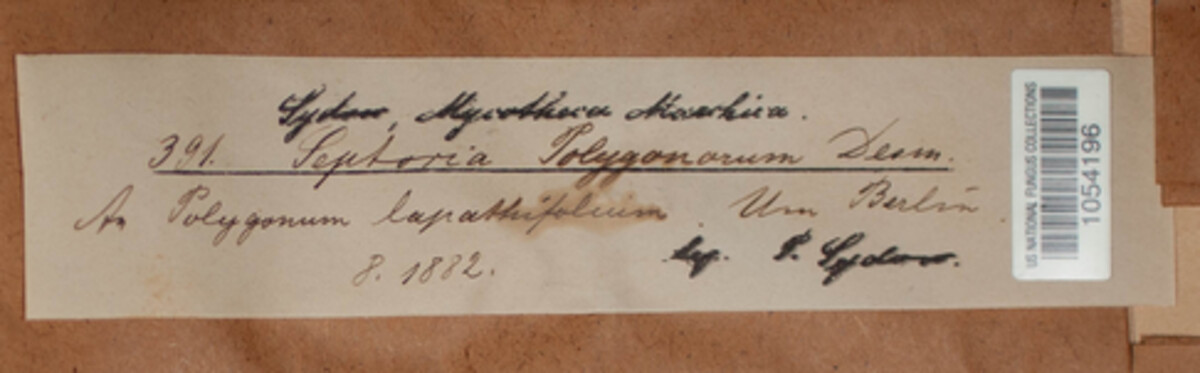 Sydow, Mycotheca Marchica.
391. Septoria Polygonorum Desm.
An Polygonum lapathifolium. Um Berlin.
8. 1882.
leg. P. Sydow.
US NATIONAL FUNGUS COLLECTIONS
1054196